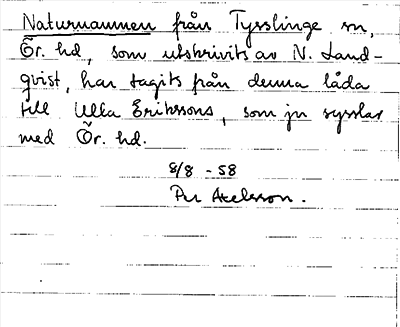 Naturnamnen från Tysslinge sn,
Ör. hd, som utskrivits av N. Land-
qvist, har tagits från denna låda
till Ulla Erikssons, som ju sysslar
med Ör. hd.
8/8 - 58
Per Axelsson.